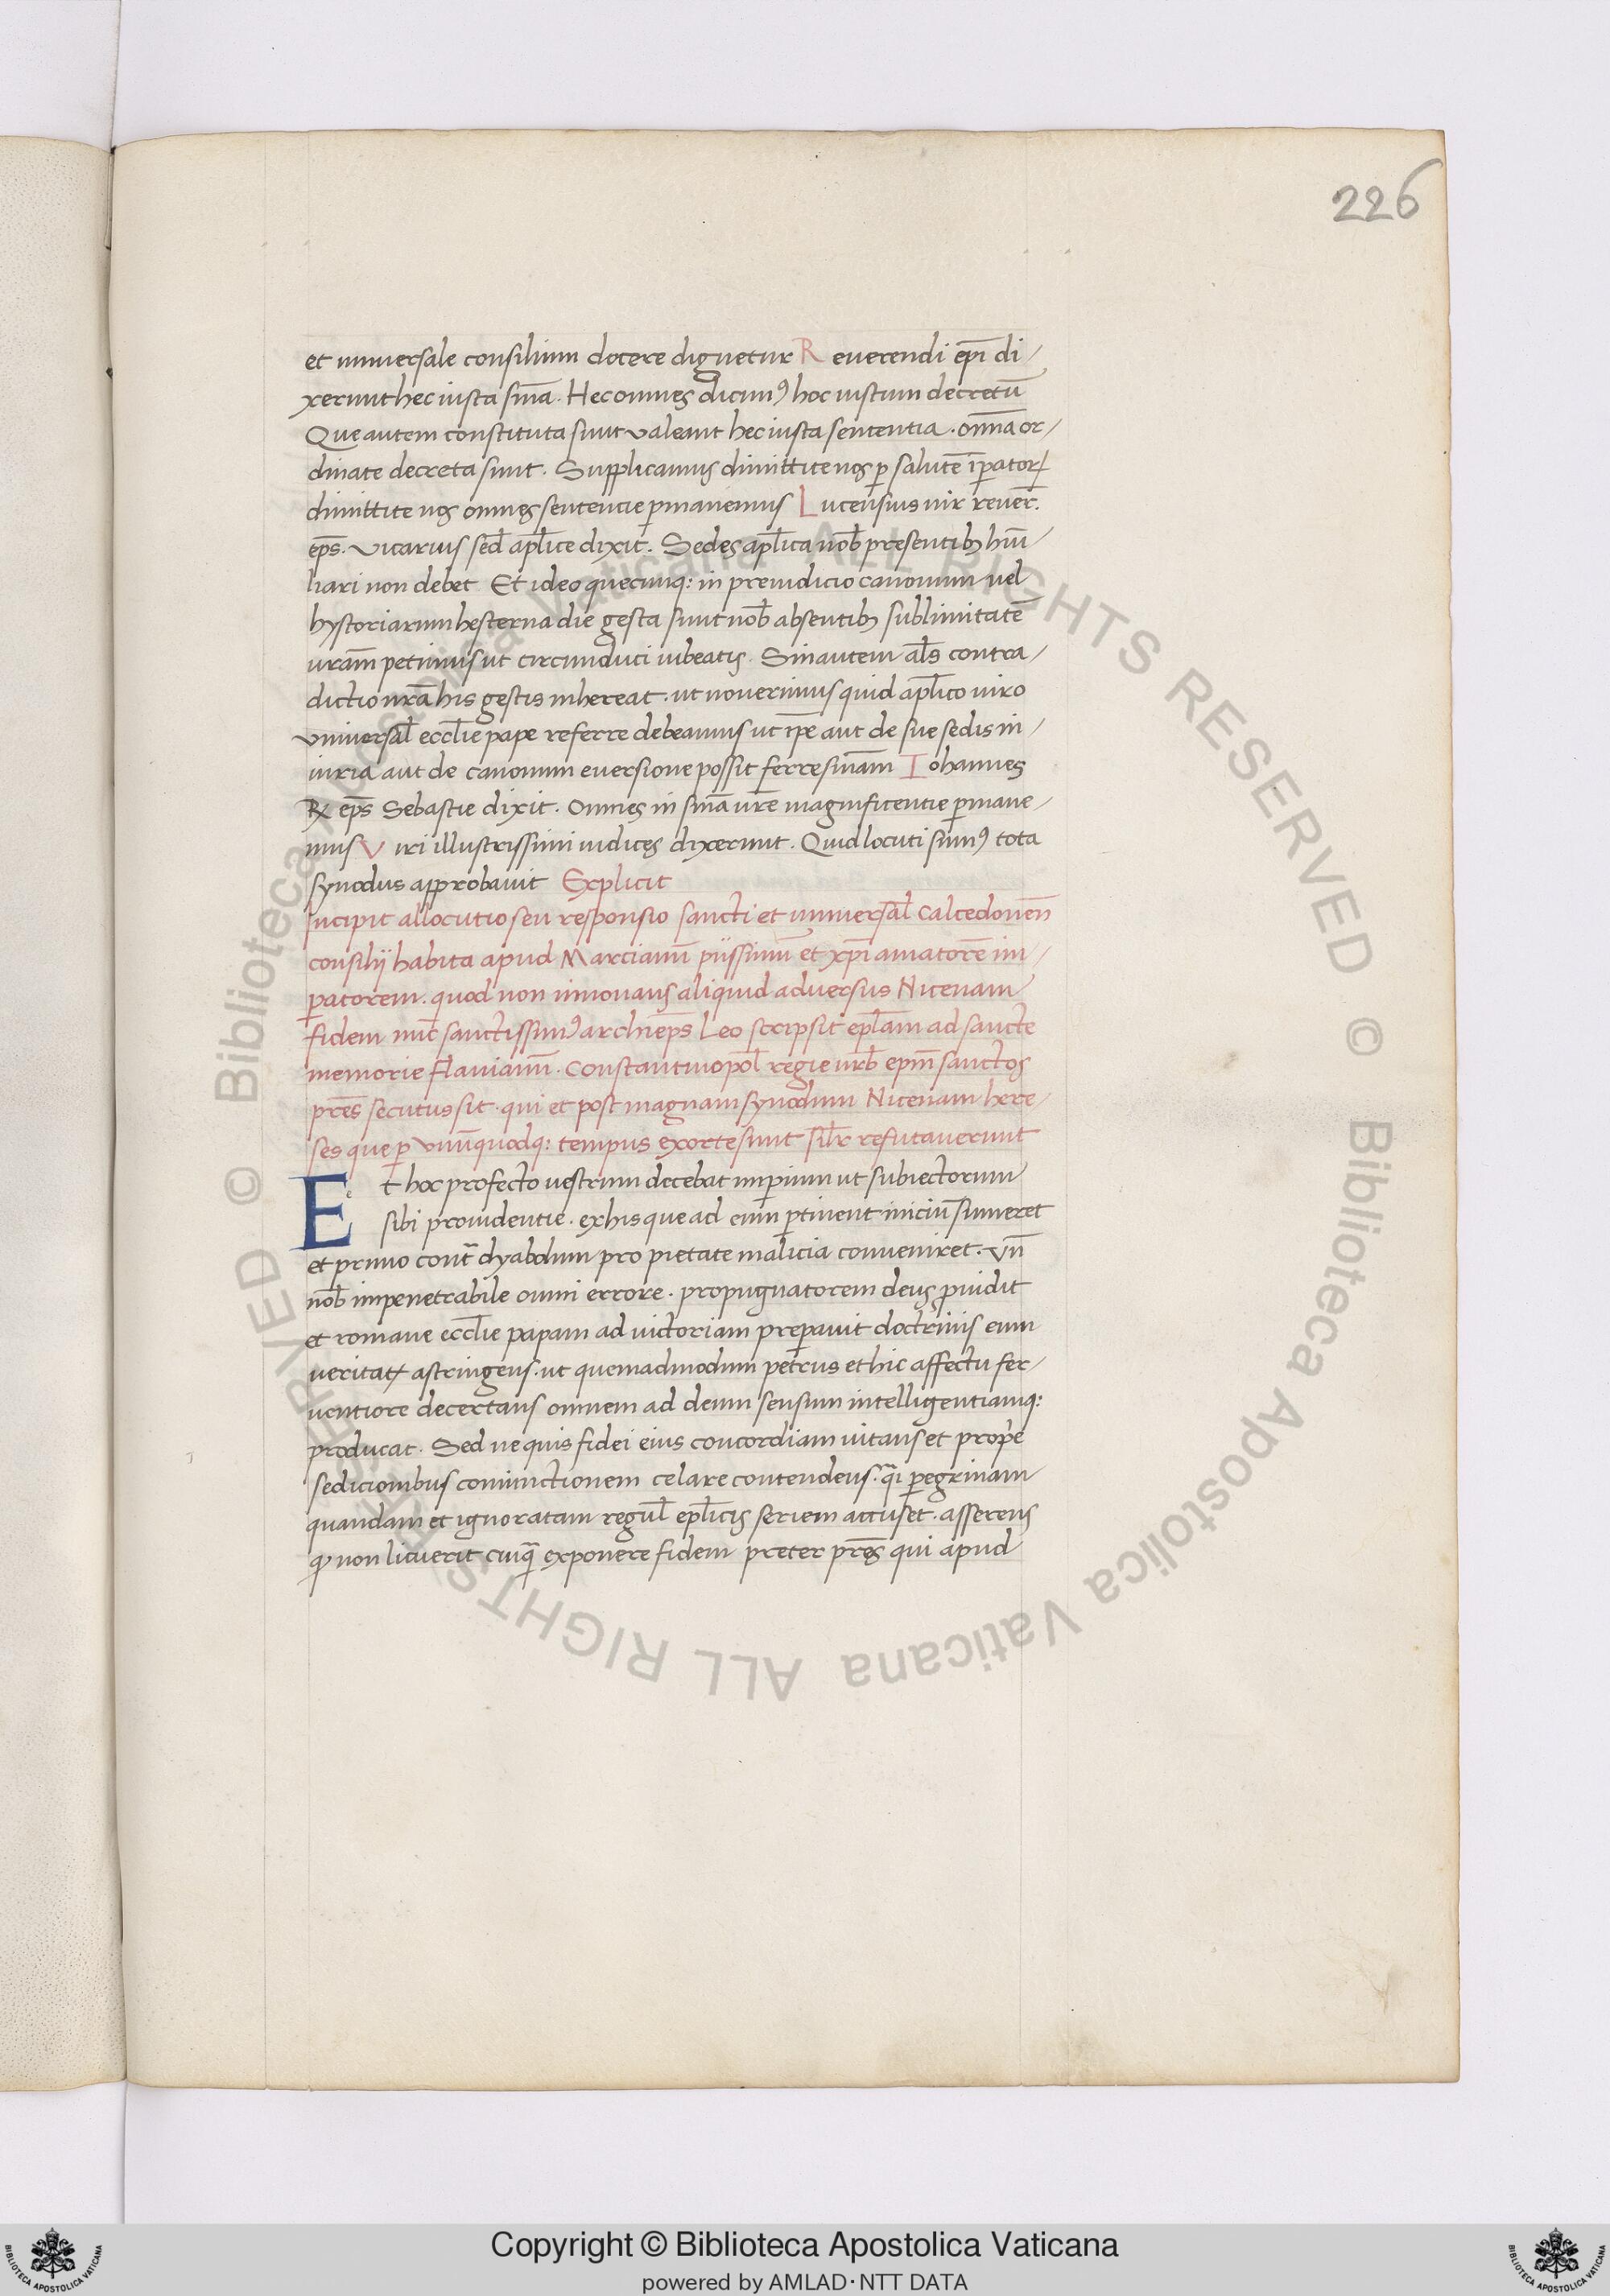 226
et universale consilium docere dignetur Reverendi ep̄i di/
xerunt hec iusta sn̄ia. Hec omnes dicimꝰ hoc iustum decretū
Que autem constituta sunt valeant hec iusta sententia. om̄ia or/
dinate decreta sunt. Supplicamus dimittite nos ꝑ salutē īꝑatorꝝ
dimittite nos omnes sententie ꝑmanemus Lucensius vir reuer̄.
ep̄s. vicarius sed̄ apl̄ice dixit. Sedes apl̄ica nob̄ presentibꝫ hūi
liari non debet Et ideo quecunqꝫ in preiudicio canonum vel
hystoriarum hesterna die gesta sunt nob̄ absentibꝫ sublimitatē
vrām petimus ut circunduci iubeatis. Sin autem al̄s contra/
dictio nrā his gestis inhereat. ut noverimus quid apl̄ico viro
vniversal̄ eccl̄ie pape referre debeamus ut ip̄e aut de sue sedis in/
iuria aut de canonum eversione possit ferre sn̄iam Iohannes
R̄ ep̄s Sebastie dixit. Omnes in sn̄ia vrē magnificentie ꝑmane/
mus Viri illustrissimi iudices dixerunt. Quid locuti sumꝰ tota
synodus approbavit Explicit
Incipit allocutio seu responsio sancti et universal̄ Calcedonen̄
consilij habita apud Marcianū piissimū et xp̄i amatorē im/
ꝑatorem. quod non innovans aliquid adversus Nicenam
fidem nūc sanctissimꝰ archiep̄s Leo scripsit epl̄am ad sancte
memorie Flavianū. Constantinopol̄ regie urb̄ ep̄m sanctos
prēs secutus sit. qui et post magnam synodum Nicenam here/
ses que ꝑ vnūquodqꝫ tempus exorte sunt sil̄r refutaverunt
Et hoc profecto vestrum decebat imꝑium ut subiectorum
sibi providentie. ex his que ad eum ꝑtinent iniciū sumeret
et primo cont̄ dyabolum pro pietate malicia conveniret. vn̄
nob̄ impenetrabile omni errore. propugnatorem deus ꝓuidit
et romane eccl̄ie papam ad victoriam preꝑavit doctrinis eum
veritatꝭ astringens. ut quemadmodum petrus et hic affectu fer/
ventiore decertans omnem ad deum sensum intelligentiamqꝫ
producat. Sed ne quis fidei eius concordiam vitans et prope
sedicionibus coniunctionem celare contendens. qᷓi ꝑegrinam
quandam et ignoratam regul̄ epl̄icis seriem accuset. asserens
ꝙ non licuerit cuiqᷓ exponere fidem preter prēs qui apud
© Biblioteca Apostolica Vaticana ALL RIGHTS RESERVED © Biblioteca Apostolica Vaticana ALL RIGHTS RESERVED
Copyright © Biblioteca Apostolica Vaticana
powered by AMLAD·NTT DATA
BIBLIOTECA APOSTOLICA VATICANA
BIBLIOTECA APOSTOLICA VATICANA